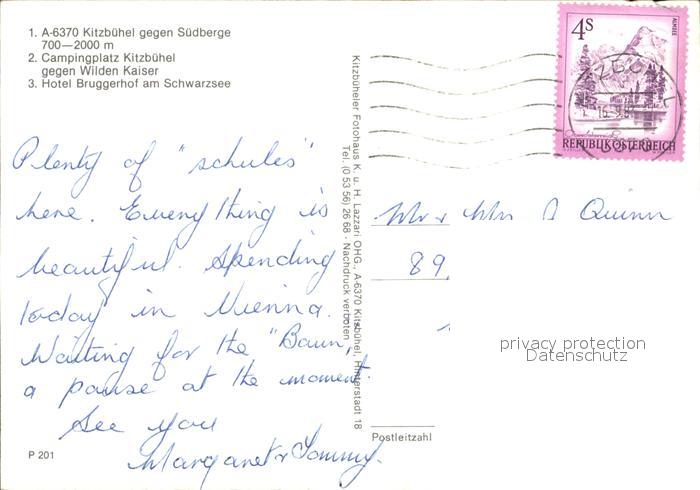 1. A-6370 Kitzbühel gegen Südberge
700—2000 m
2. Campingplatz Kitzbühel
gegen Wilden Kaiser
3. Hotel Bruggerhof am Schwarzsee
Plenty of "schules"
here. Everything is
beautiful. Spending
today in Vienna.
Waiting for the "Baun,"
a pause at the moment.
See you
Margaret & Tommy.
P 201
Kitzbüheler Fotohaus K. u. H. Lazzari OHG., A-6370 Kitzbühel, Hinterstadt 18
Tel. (0 53 56) 26 68 - Nachdruck verboten
4s
ALMSEE
REPUBLIK ÖSTERREICH
Mr & Mrs D Quinn
89,
privacy protection
Datenschutz
Postleitzahl